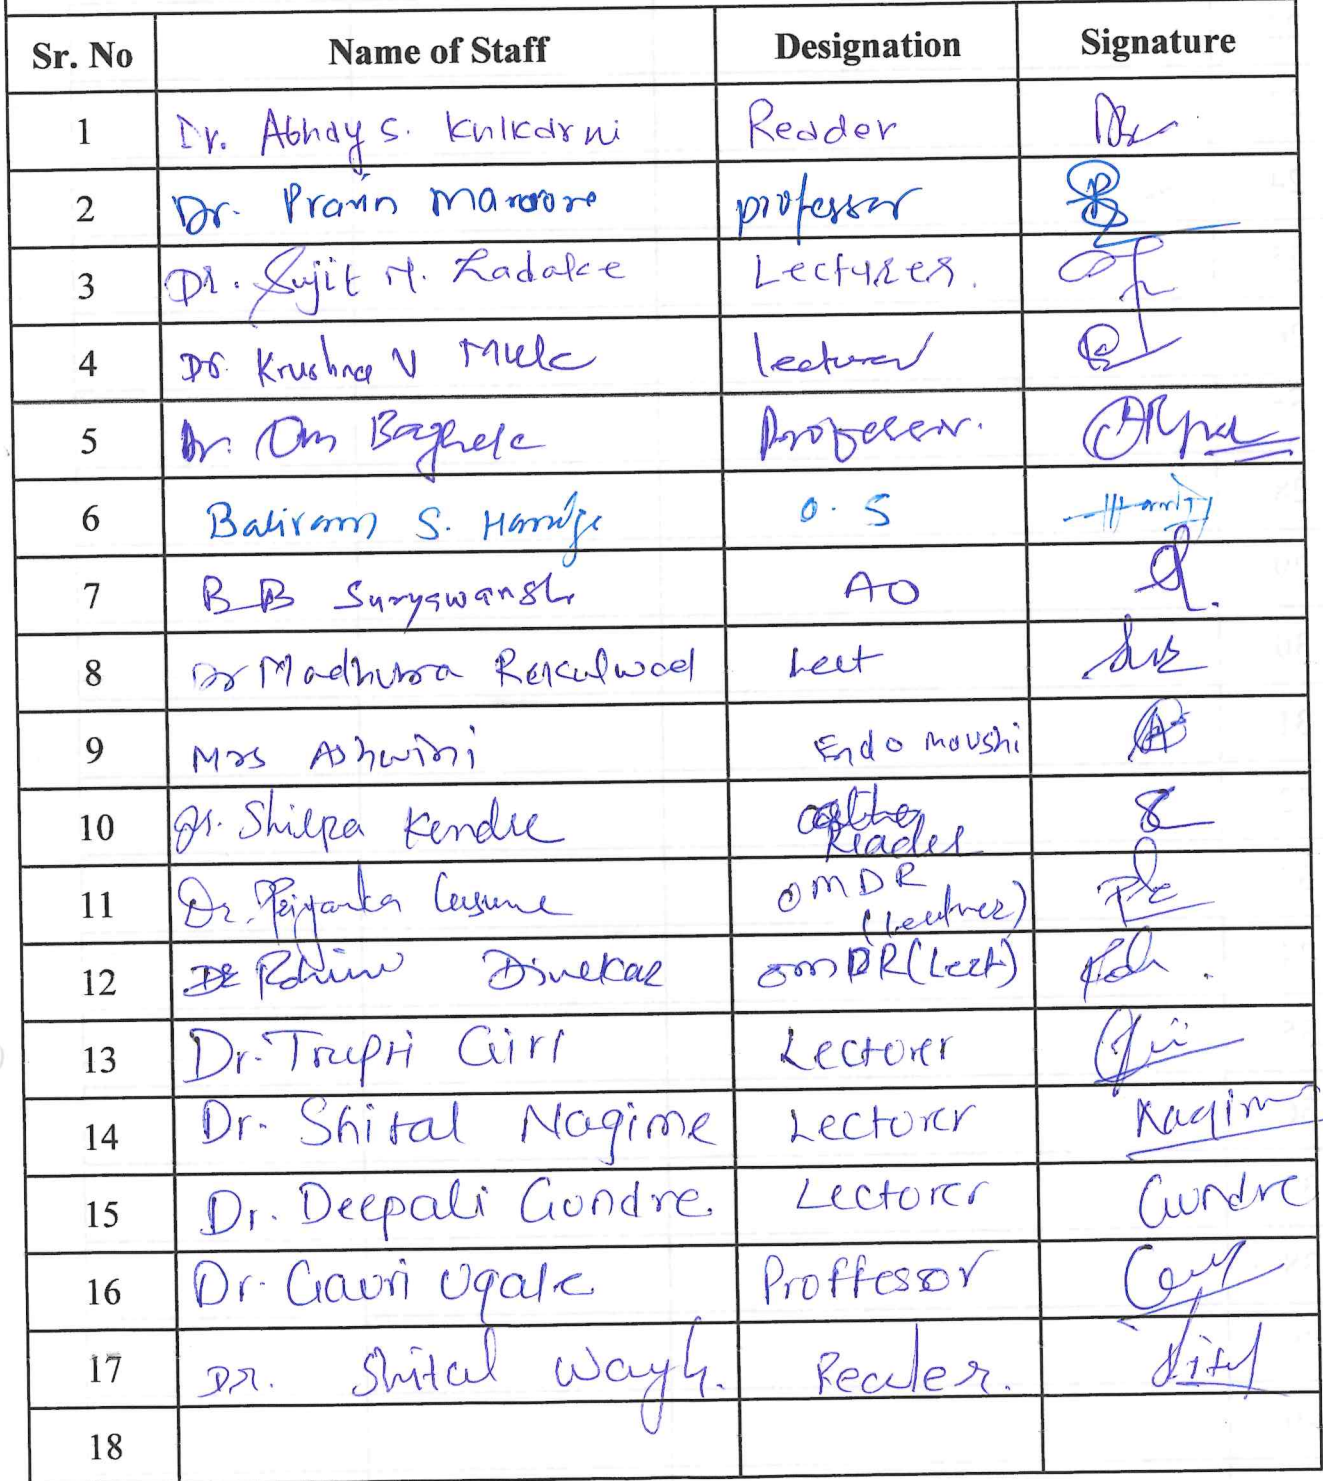 Sr. No Name of Staff Designation Signature
1 Dr. Abhay S. Kulkarni Reader
2 Dr. Pravin professor
3 Dr. Sujit M. Zadake Lecturer.
4 Dr. Krushna V Mule lecturer
5 Dr. Om Baghele Professor.
6 Baliram S. O.S
7 B B Suryawanshi AO
8 Dr Madhura Rekulwad Lect
9 Mrs Ashwini Endo Moushi
10 Dr. Shilpa Kendre
Reader
11 Dr. Priyanka OMDR
(Lecturer)
12 Dr Rohini Divekar OMDR (Lect)
13 Dr. Trupti Giri Lecturer
14 Dr. Shital Nagime Lecturer Nagime
15 Dr. Deepali Gundre. Lecturer Gundre
16 Dr. Gauri Ugale Proffessor
17 DR. Shital Wagh. Reader.
18